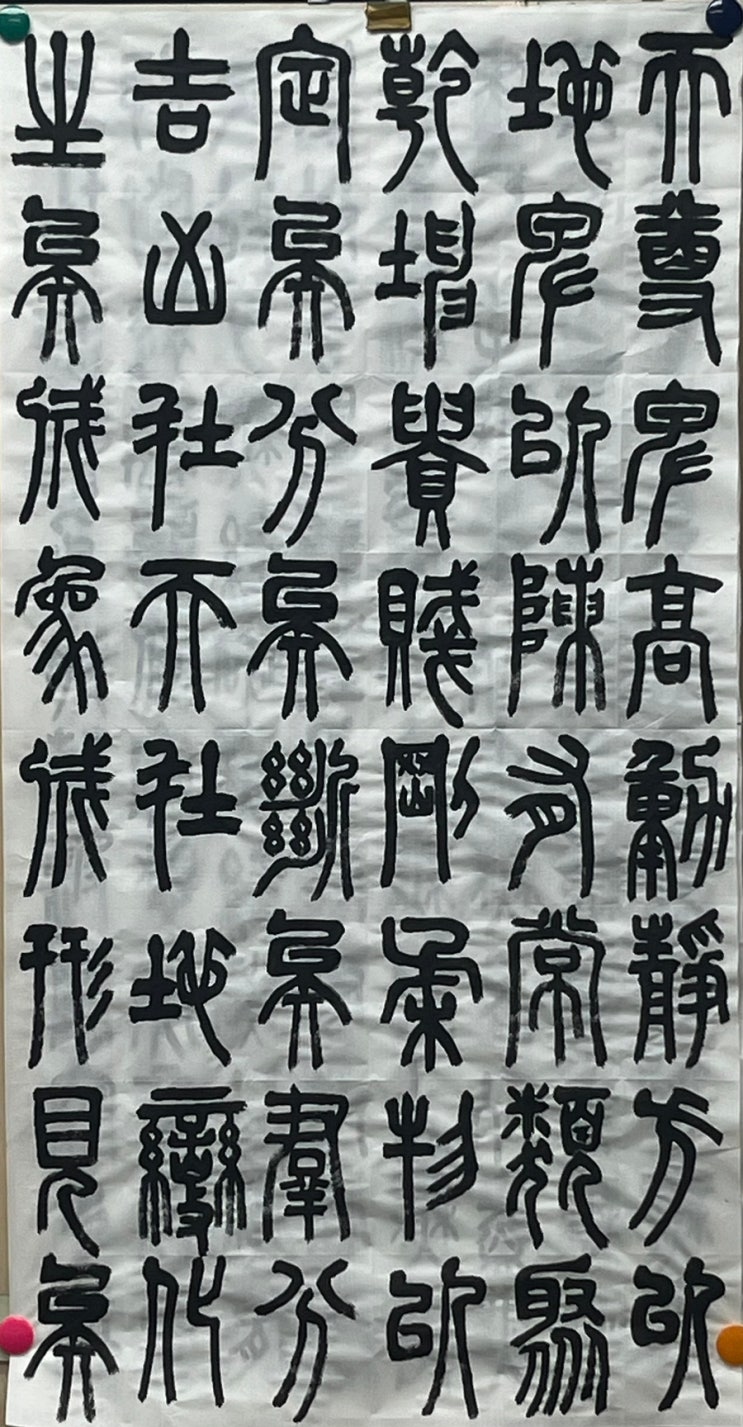 天尊卑高動靜方以
地卑以陳有常類聚
乾坤貴賤剛柔物以
定矣分矣斷矣羣分
吉凶在天在地變化
生矣成象成形見矣